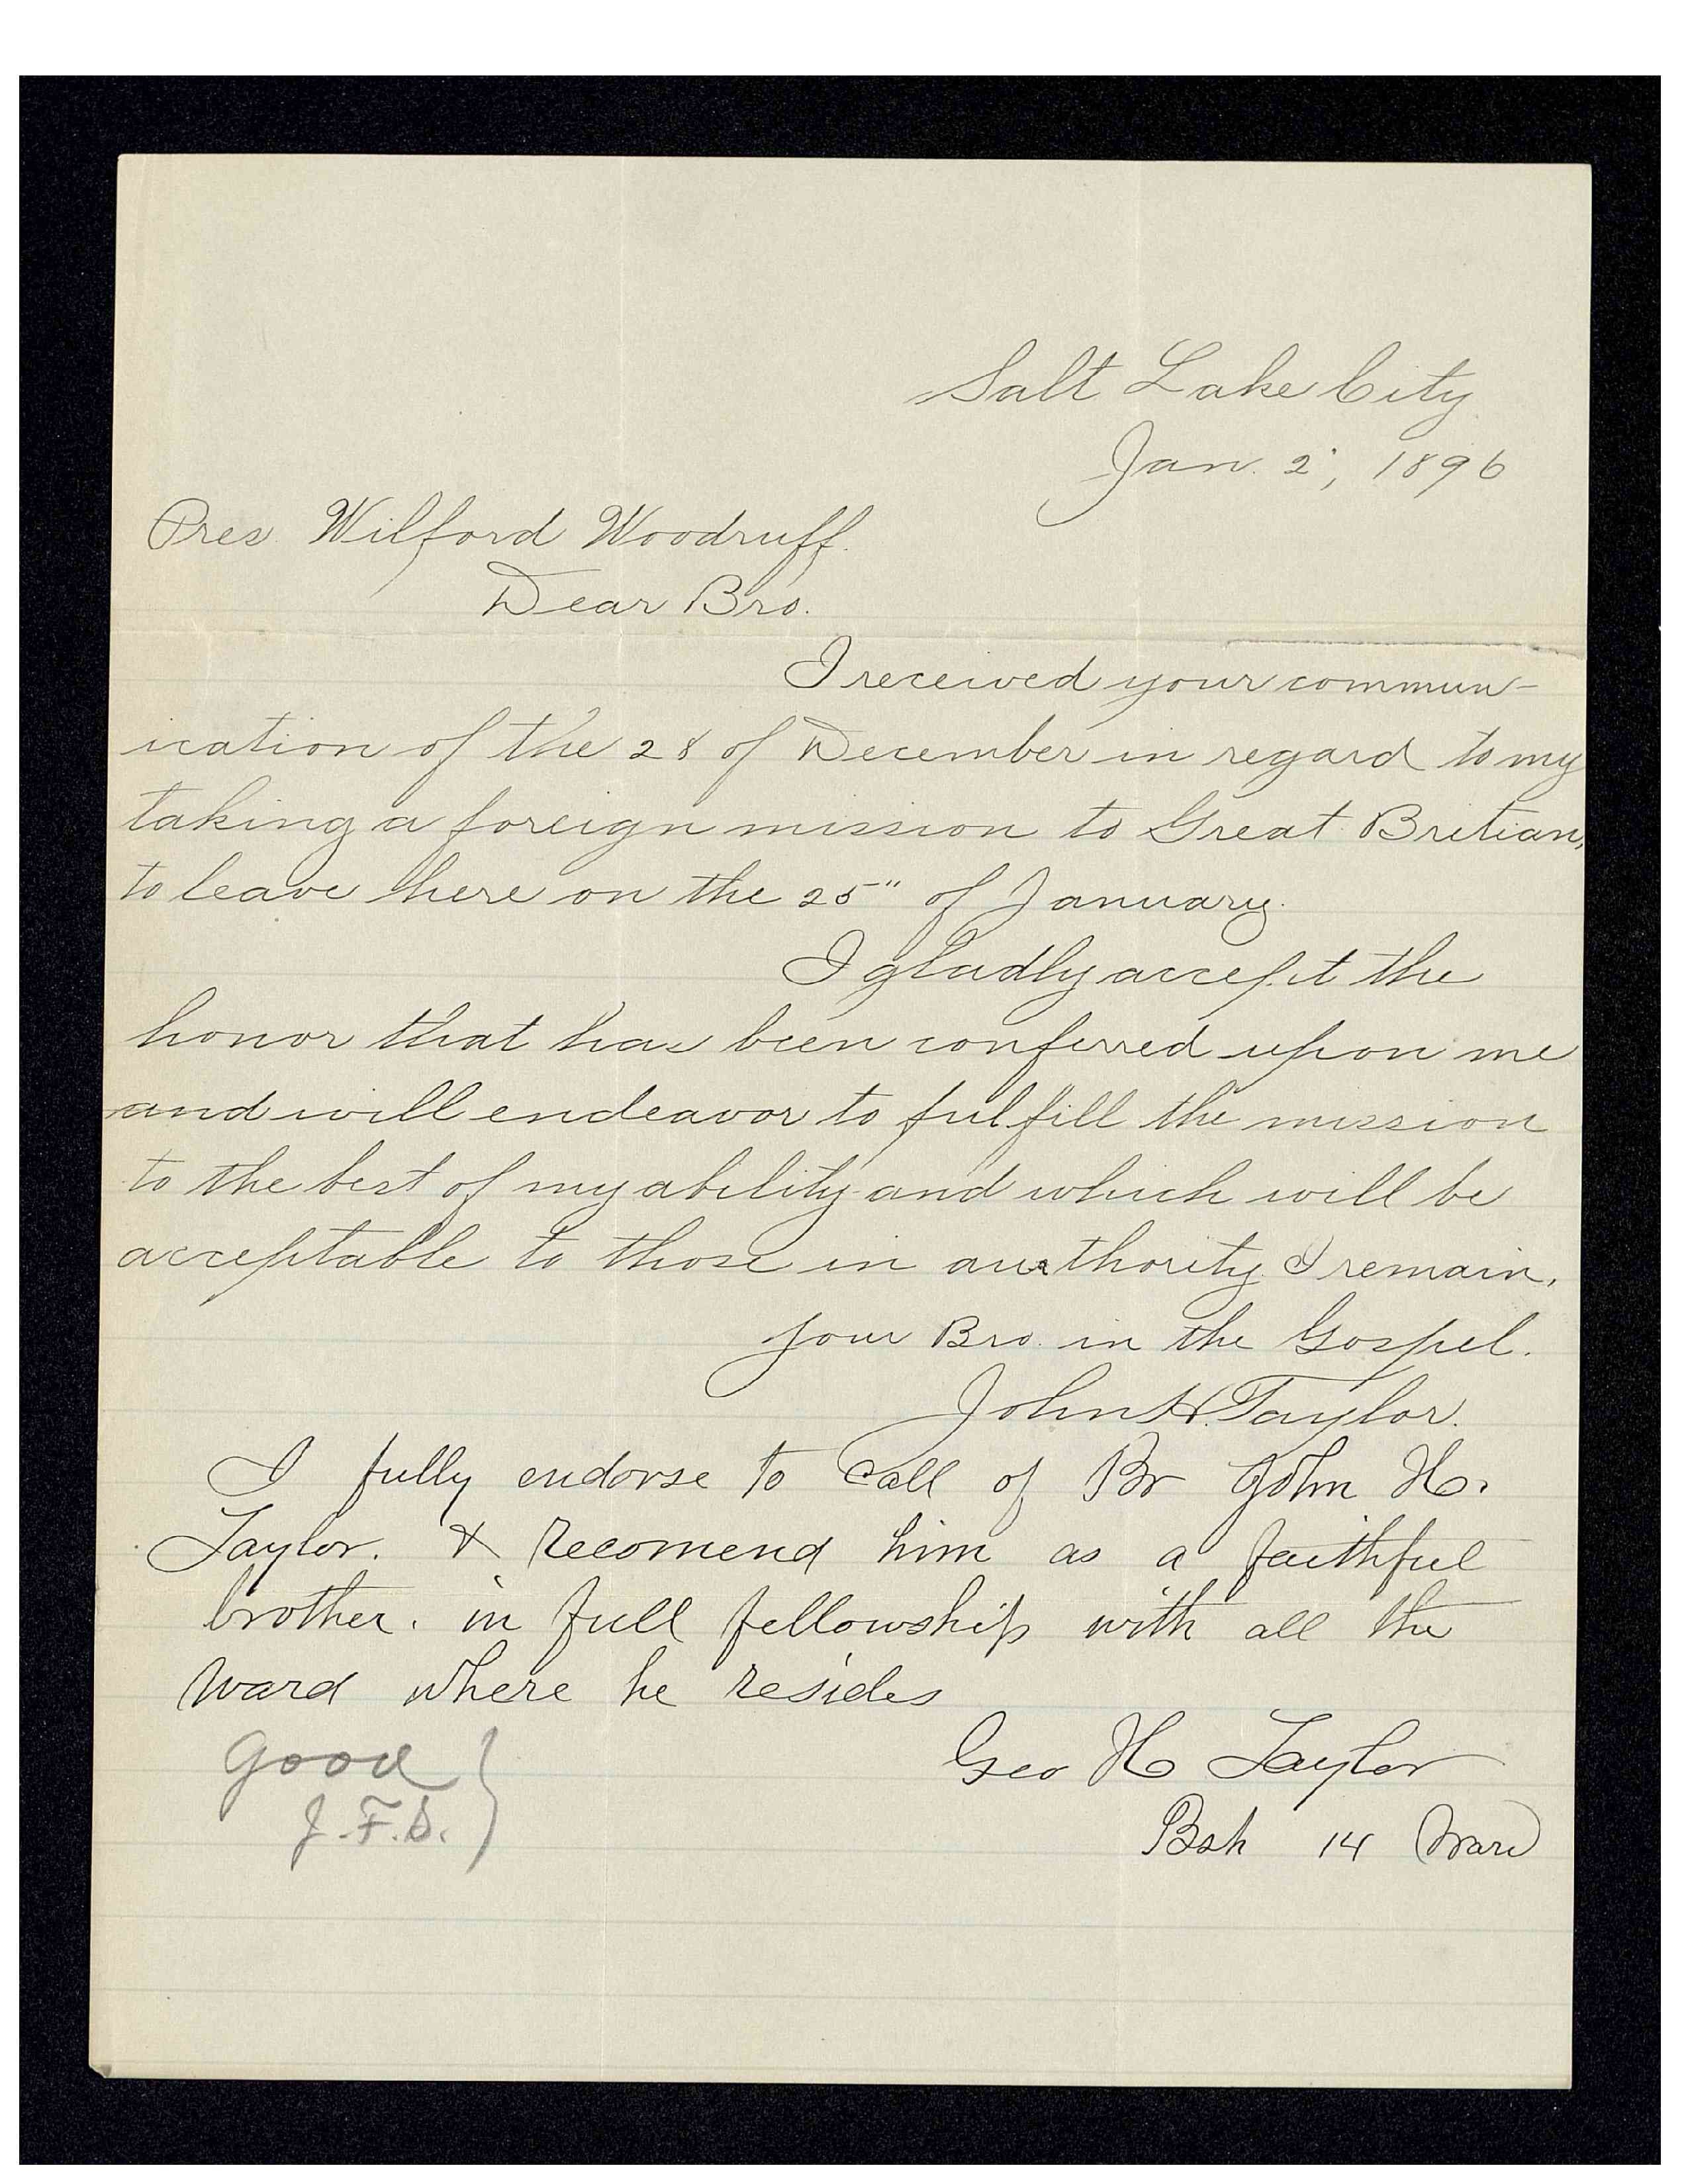 Salt Lake City
Jan. 2", 1896
Pres. Wilford Woodruff.
Dear Bro.
I received your commun-
ication of the 28 of December in regard to my
taking a foreign mission to Great Britian,
to leave here on the 25" of January.
I gladly accept the
honor that has been conferred upon me
and will endeavor to fulfill the mission
to the best of my ability and which will be
acceptable to those in authority. I remain,
your Bro. in the Gospel.
John H. Taylor.
I fully endorse to call of Br John H.
Taylor. & recomend him as a faithful
brother. in full fellowship with all the
Ward where he resides
Geo H Taylor
Bsh 14 Ward
Good
J.F.S.